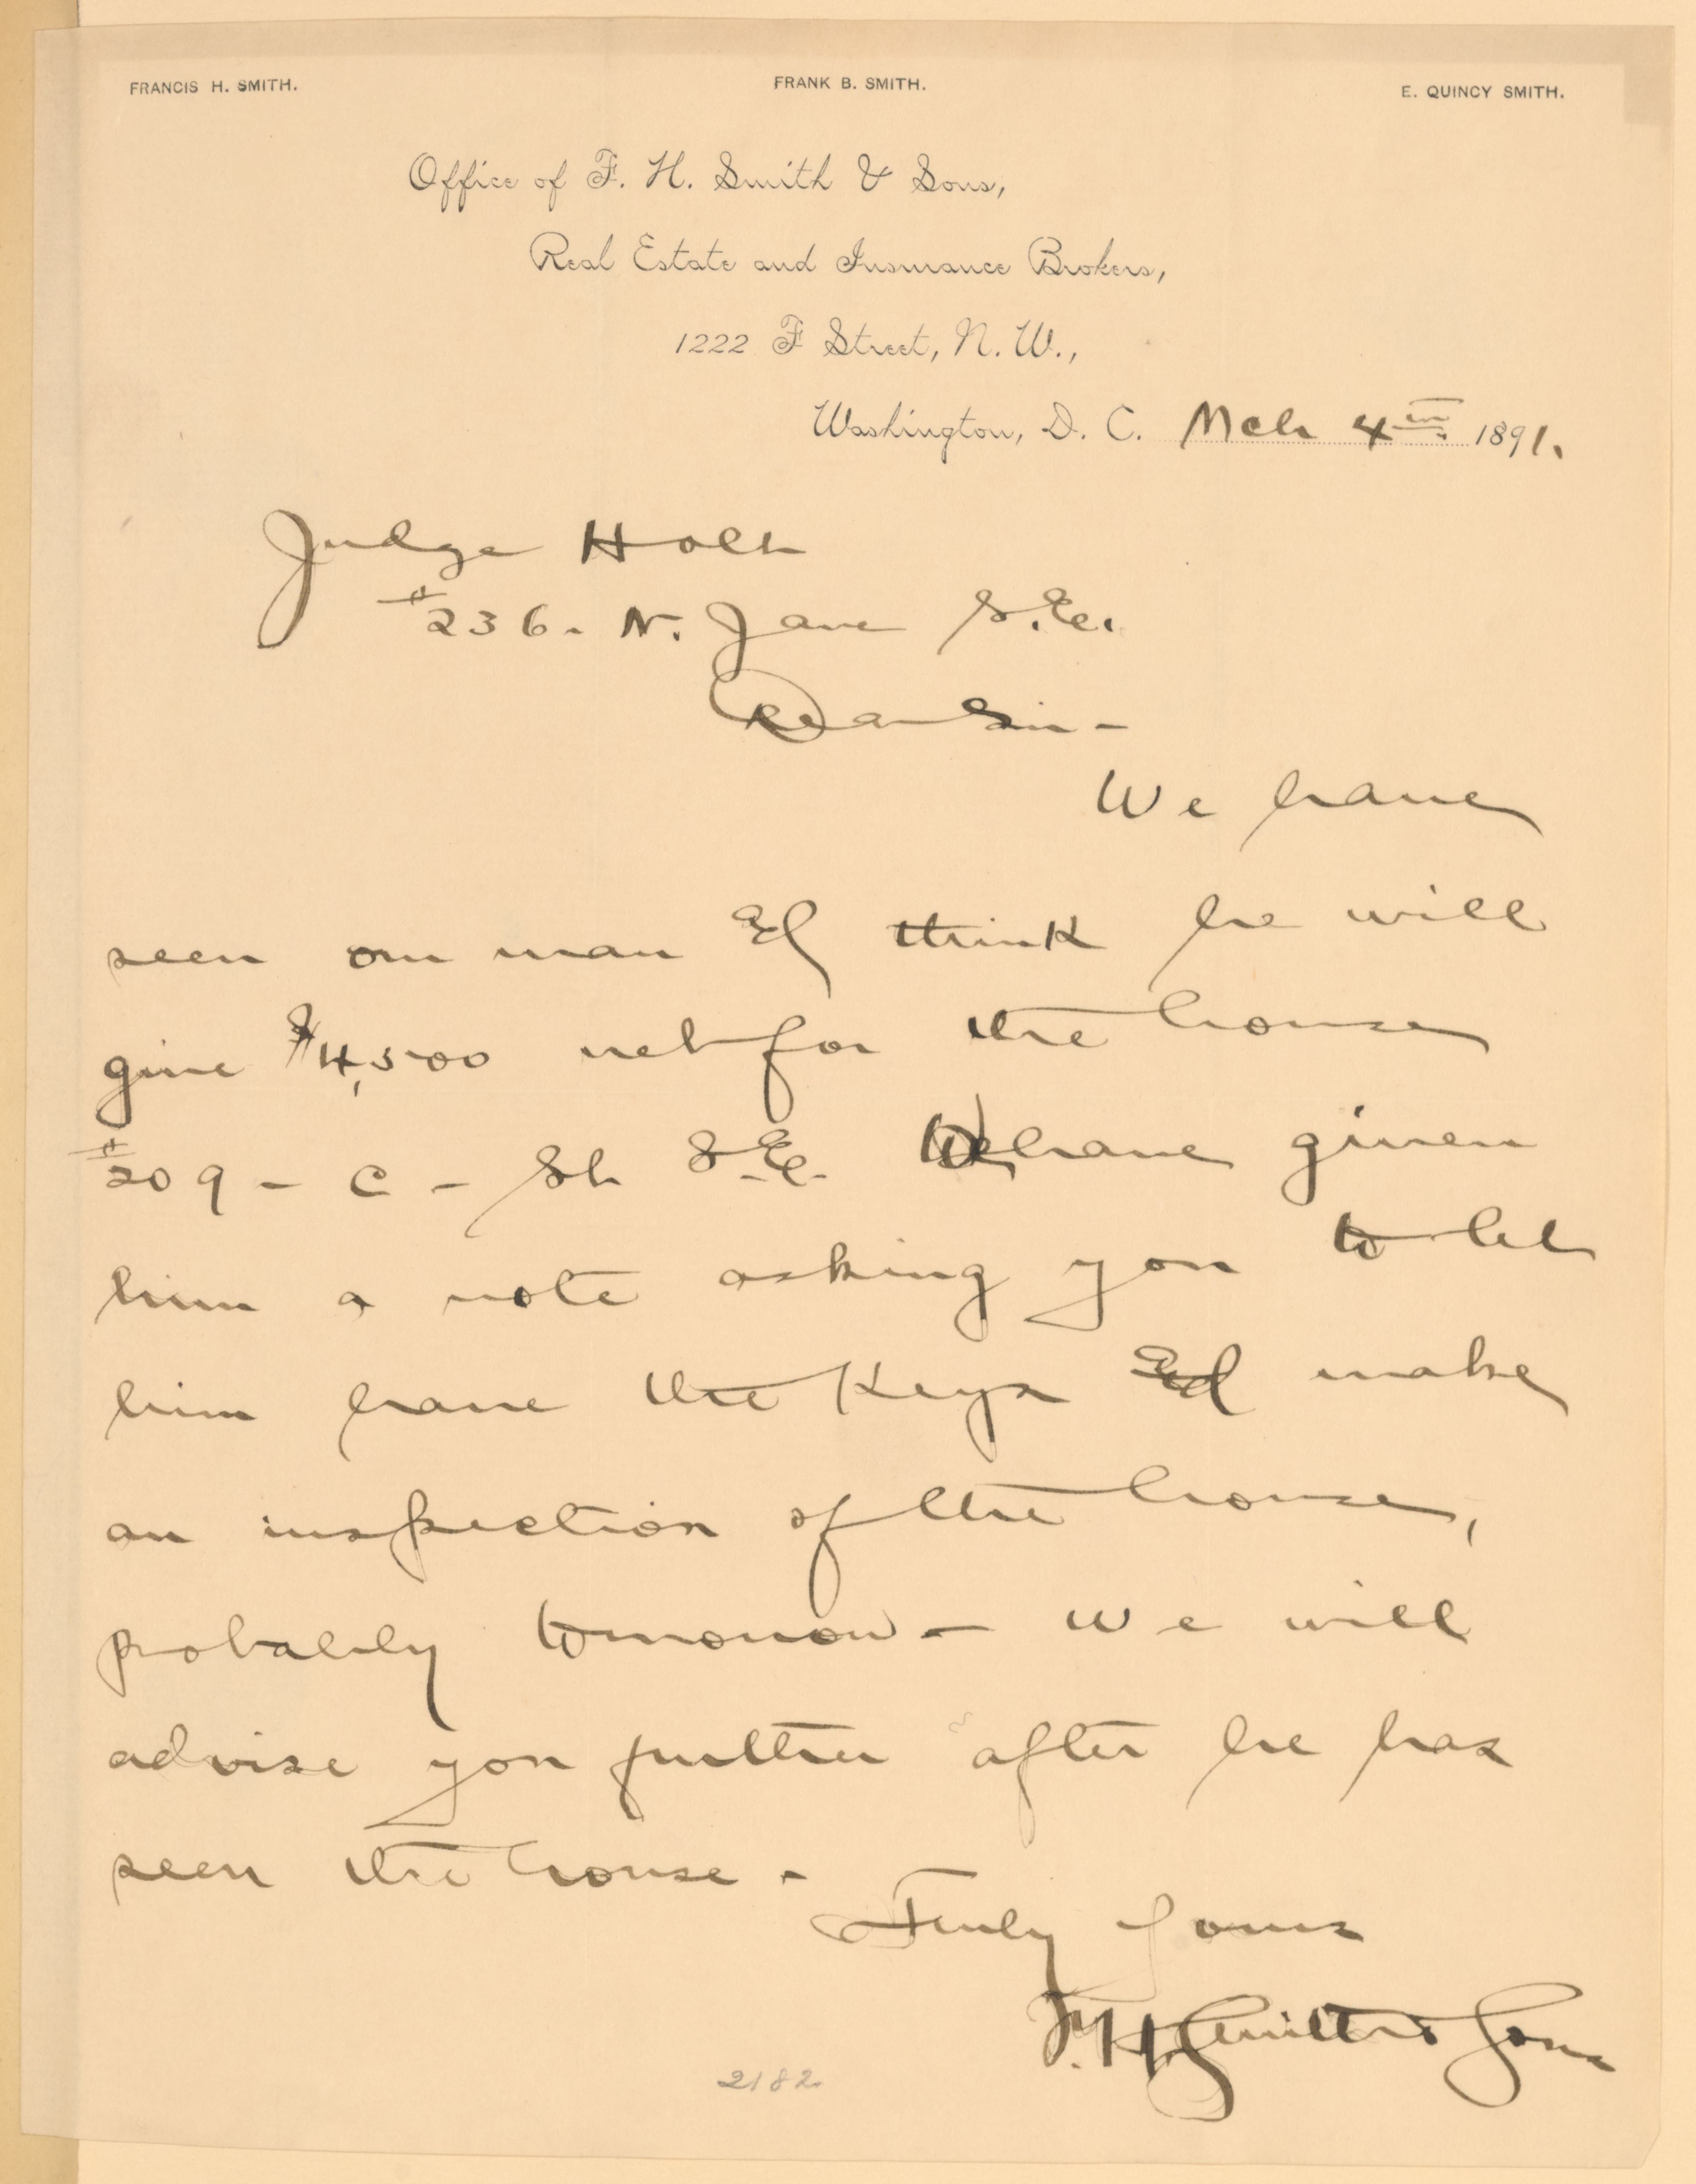 FRANCIS H. SMITH. FRANK B. SMITH. E. QUINCY SMITH.
Office of F. H. Smith & Sons,
Real Estate and Insurance Brokers,
1222 F Street, N. W.,
Washington, D. C. Mch 4th 1891.
Judge Holt
#236. N. Jave S.E.
Dear Sir -
We have
seen our man & think he will
give $4,500 net for the house
#209 - C - St S.E. We have given
him a note asking you to let
him have the Keys and make
an inspection of the house,
probably tomorrow - We will
advise you further after he has
seen the house -
Truly Yours
F. H. Smith & Sons
2182